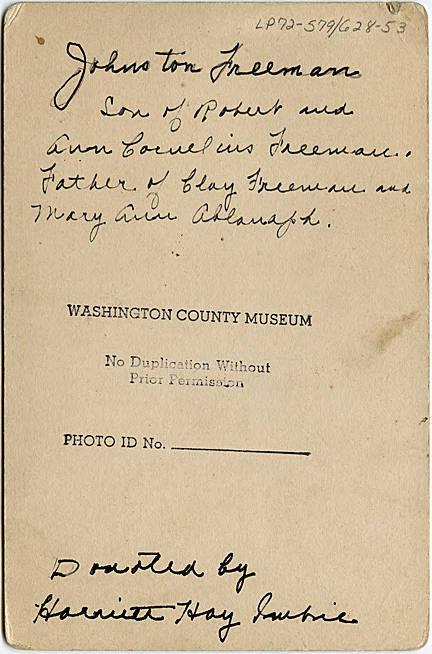 LP72-579/628-53
Johnston Freeman
Son of Robert and
Ann Cornelius Freeman.
Father of Clay Freeman and
Mary Ann Ablanaph.
WASHINGTON COUNTY MUSEUM
No Duplication Without
Prior Permission
PHOTO ID No.
Donated by
Harriett Hay Imbrie